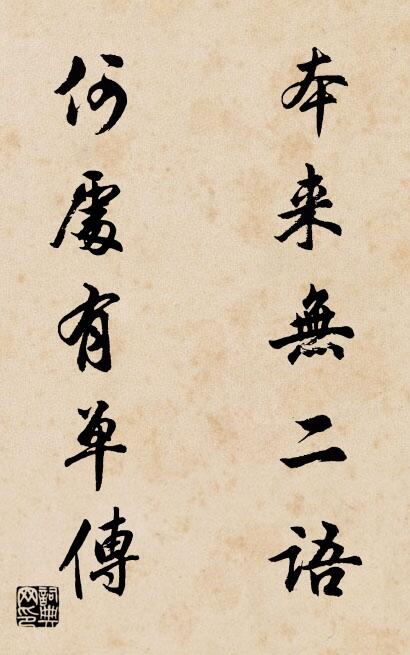 本来無二語
何處有单傳
詞典網印